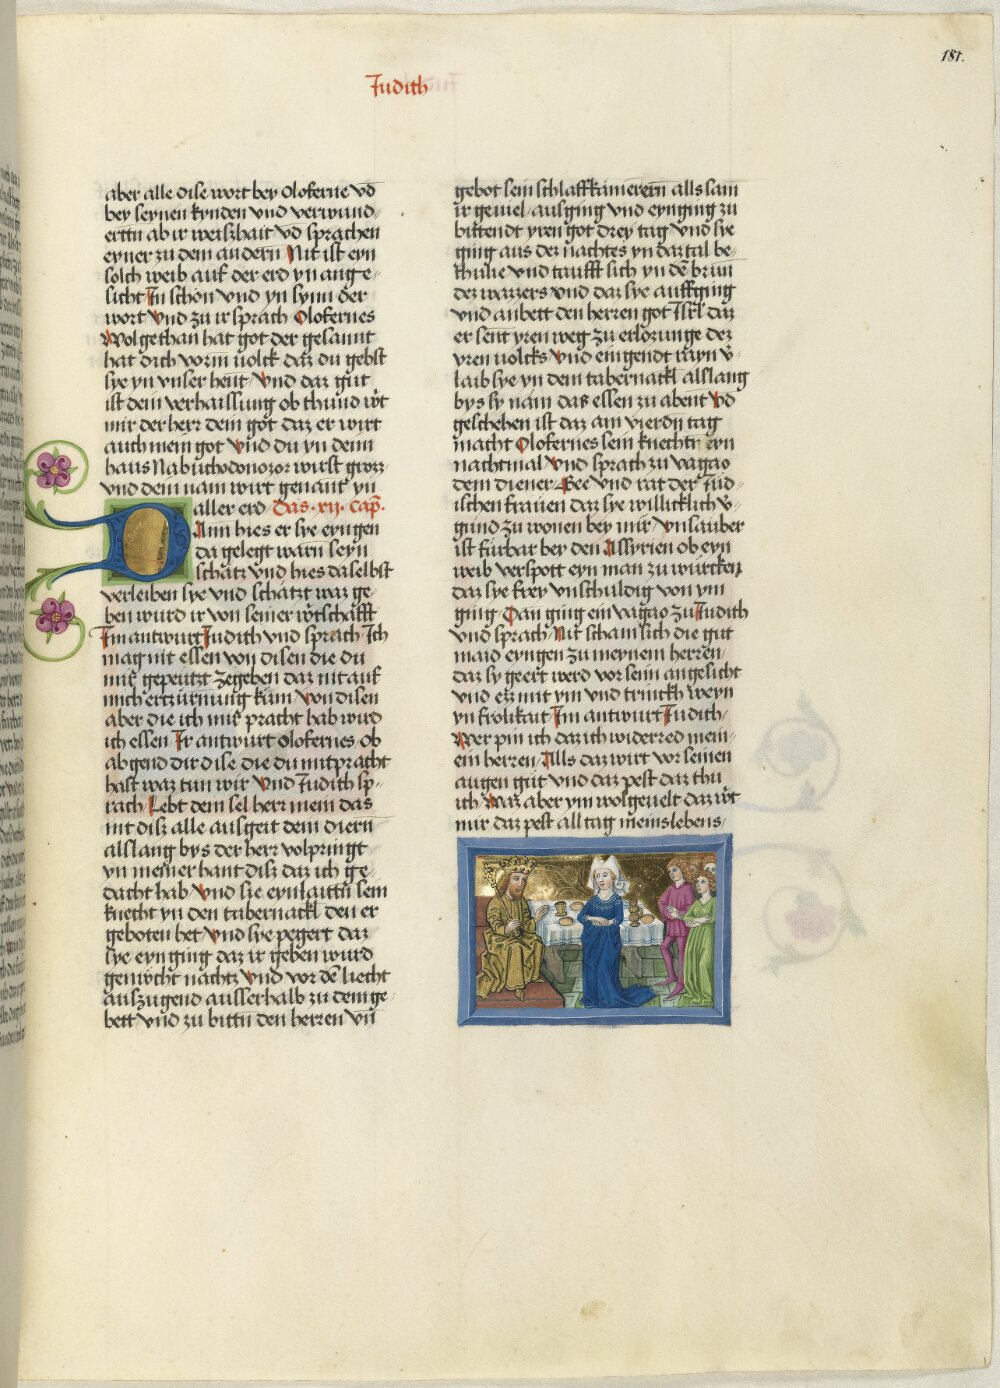 181.
Judith
aber alle dise wort bey Oloferne vd
bey seynen kynden vnd verwund-
ertn ab ir weiszhait vd sprachen
eyner zu dem andern Nit ist eyn
solch weib auf der erd yn ange-
sicht In schön vnd yn synn der
wort Vnd zu ir sprach Olofernes
Wolgethan hat got der gesannt
hat dich vorm uolck daz du gebst
sye yn vnser hent Vnd daz gut
ist dein verhaissung ob thund wirt
mir der herr dein got daz er wirt
auch mein got Vnd du yn dem
haus Nabuchodonozor wirst grozz
vnd dein nam wirt genant yn
aller erd Das .xij. cap.
Dann hies er sye eyngen
da gelegt warn seyn
schätz vnd hies daselbst
verleiben sye vnd schätzt waz ge-
ben wurd ir von seiner wirtschafft
Im antwurt Judith vnd sprach Ich
mag nit essen von disen die du
mir gepeutzt zegeben daz nit auf
mich erzürnung kum Von disen
aber die ich mir pracht hab wird
ich essen Ir antwurt Olofernes ob
abgend dir dise die du mitpracht
hast waz tun wir Vnd Judith sp-
rach Lebt dein sel herr mein das
nit disz alle ausgeit dein diern
alslang bys der herr volpringt
yn meiner hant disz daz ich ge-
dacht hab Vnd sie eynlaittn sein
knecht yn den tabernackl den er
geboten het Vnd sye pegert daz
sye eynging daz ir geben wurd
gemöcht nachtz Vnd vor dem liecht
auszugend ausserhalb zu dem ge-
bett Vnd zu bittn den herren Vnd
gebot sein schlaffkamerern alls sam
ir geuiel ausging vnd eynging zu
bittendt yren got drey tag Vnd sye
ging aus dez nachtes yn daz tal be-
thulie Vnd taufft sich yn dem brun
dez wazzers Vnd daz sye auffging
vnd anbett den herren got Isrl daz
er sent yren weg zu erlosunge dez
yren uolcks Vnd eingendt rayn v-
laib sye yn dem tabernackl alslang
bys sy nam das essen zu abent Vnd
geschehen ist daz am vierdn tag
macht Olofernes sein knechtn eyn
nachtmal Vnd sprach zu Vagao
dem diener Gee Vnd rat der Jud-
ischen frauen daz sye willicklich v-
gund zu wonen bey mir Vnsauber
ist fürbar bey den Assyrien ob eyn
weib verspott eyn man zu würcken
daz sye frey vnschuldig von ym
ging Dan ging ein Vagao zu Judith
vnd sprach Nit scham sich die gut
maid eyngen zu meynem herren
daz sy geert werd vor sein angesicht
vnd ezz mit ym vnd trinckh weyn
yn frolikait Im antwurt Judith
Wer pin ich daz ich widerred mein-
em herren Alls daz wirt vor seinen
augen gut vnd daz pest daz thu
ich Waz aber ym wolgeuelt daz wirt
mir daz pest all tag meins lebens